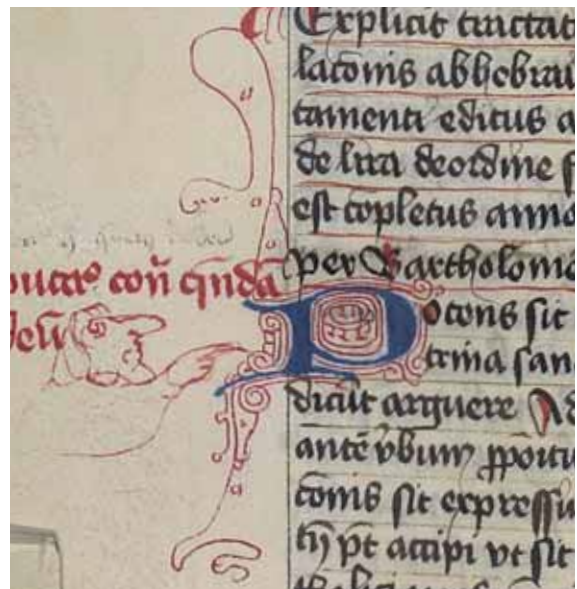 Explicit tractat
latonis abbebrau
tamenti editus a
de lira de ordine f
est copletus anno
per Bartholome
Potens sit
trina san
dicūt arguere Ad
antē vbum ꝓpoitu
tonis sit expressu
pt accipi vt sit
coñ qndā